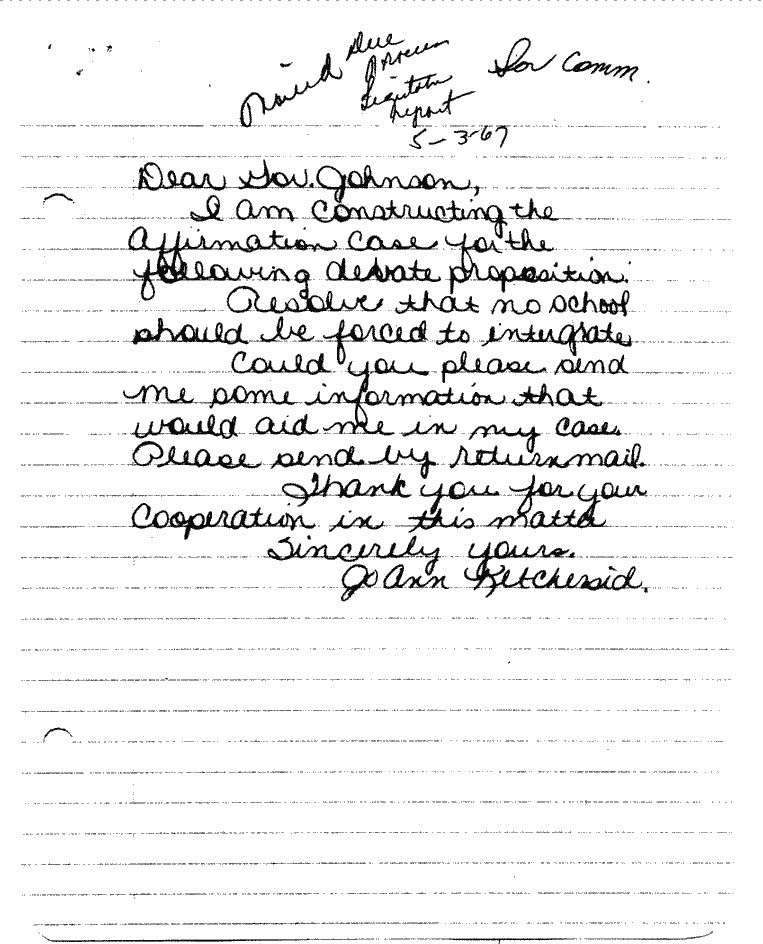 Mailed Due
Process
Legislative
Report
Sov Comm.
5-3-67
Dear Gov. Johnson,
I am constructing the
affirmation case for the
following debate proposition:
Resolve that no school
should be forced to intergrate.
Could you please send
me some information that
would aid me in my case.
Please send by return mail.
Thank you for your
cooperation in this matter
Sincerely yours.
JoAnn Ketchersid.